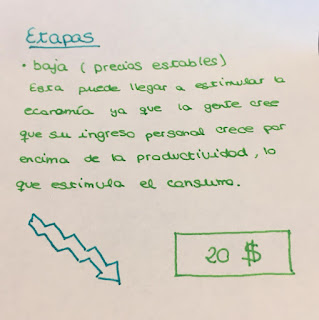 Etapas
• baja ( precios estables)
Esta puede llegar a estimular la
economía ya que la gente cree
que su ingreso personal crece por
encima de la productividad, lo
que estimula el consumo.
20 $